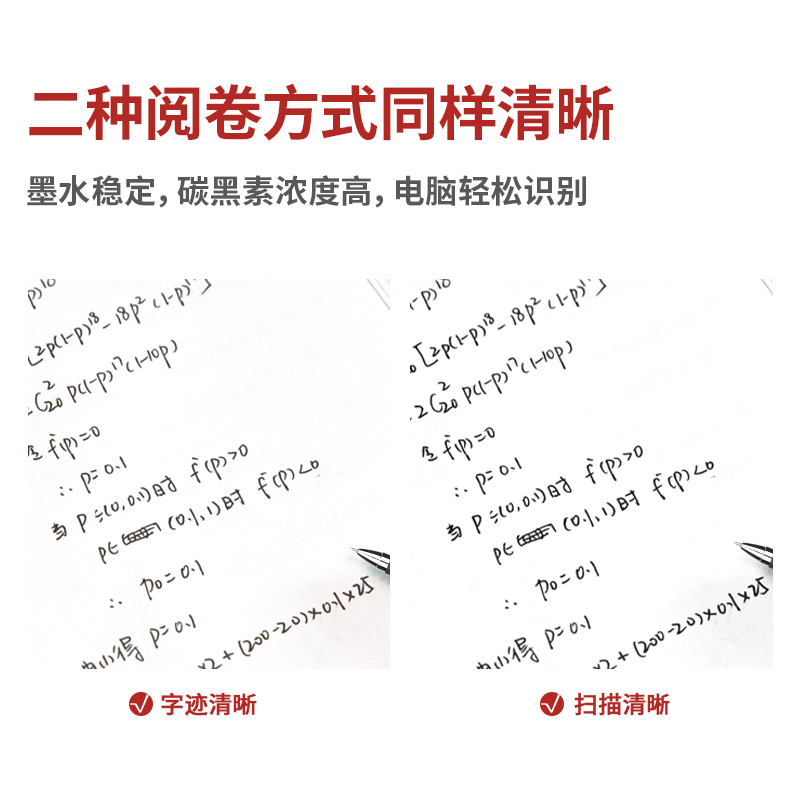 二种阅卷方式同样清晰
墨水稳定，碳黑素浓度高，电脑轻松识别
p)¹⁸
[2p(1-p)¹⁸-18p²(1-p)¹⁷]
C²₂₀ p(1-p)¹⁷(1-10p)
令 f'(p)=0
∴ p=0.1
当 P=(0,0.1)时 f'(p)>0
p∈ (0.1,1)时 f'(p)<0
∴ p₀=0.1
得 p=0.1
×2+(200-20)×0.1×25
-p)¹⁸
[2p(1-p)¹⁸-18p²(1-p)¹⁷]
2C²₂₀ p(1-p)¹⁷(1-10p)
令 f'(p)=0
∴ p=0.1
当 P=(0,0.1)时 f'(p)>0
p∈ (0.1,1)时 f'(p)<0
∴ p₀=0.1
得 p=0.1
×2+(200-20)×0.1×25
字迹清晰
扫描清晰